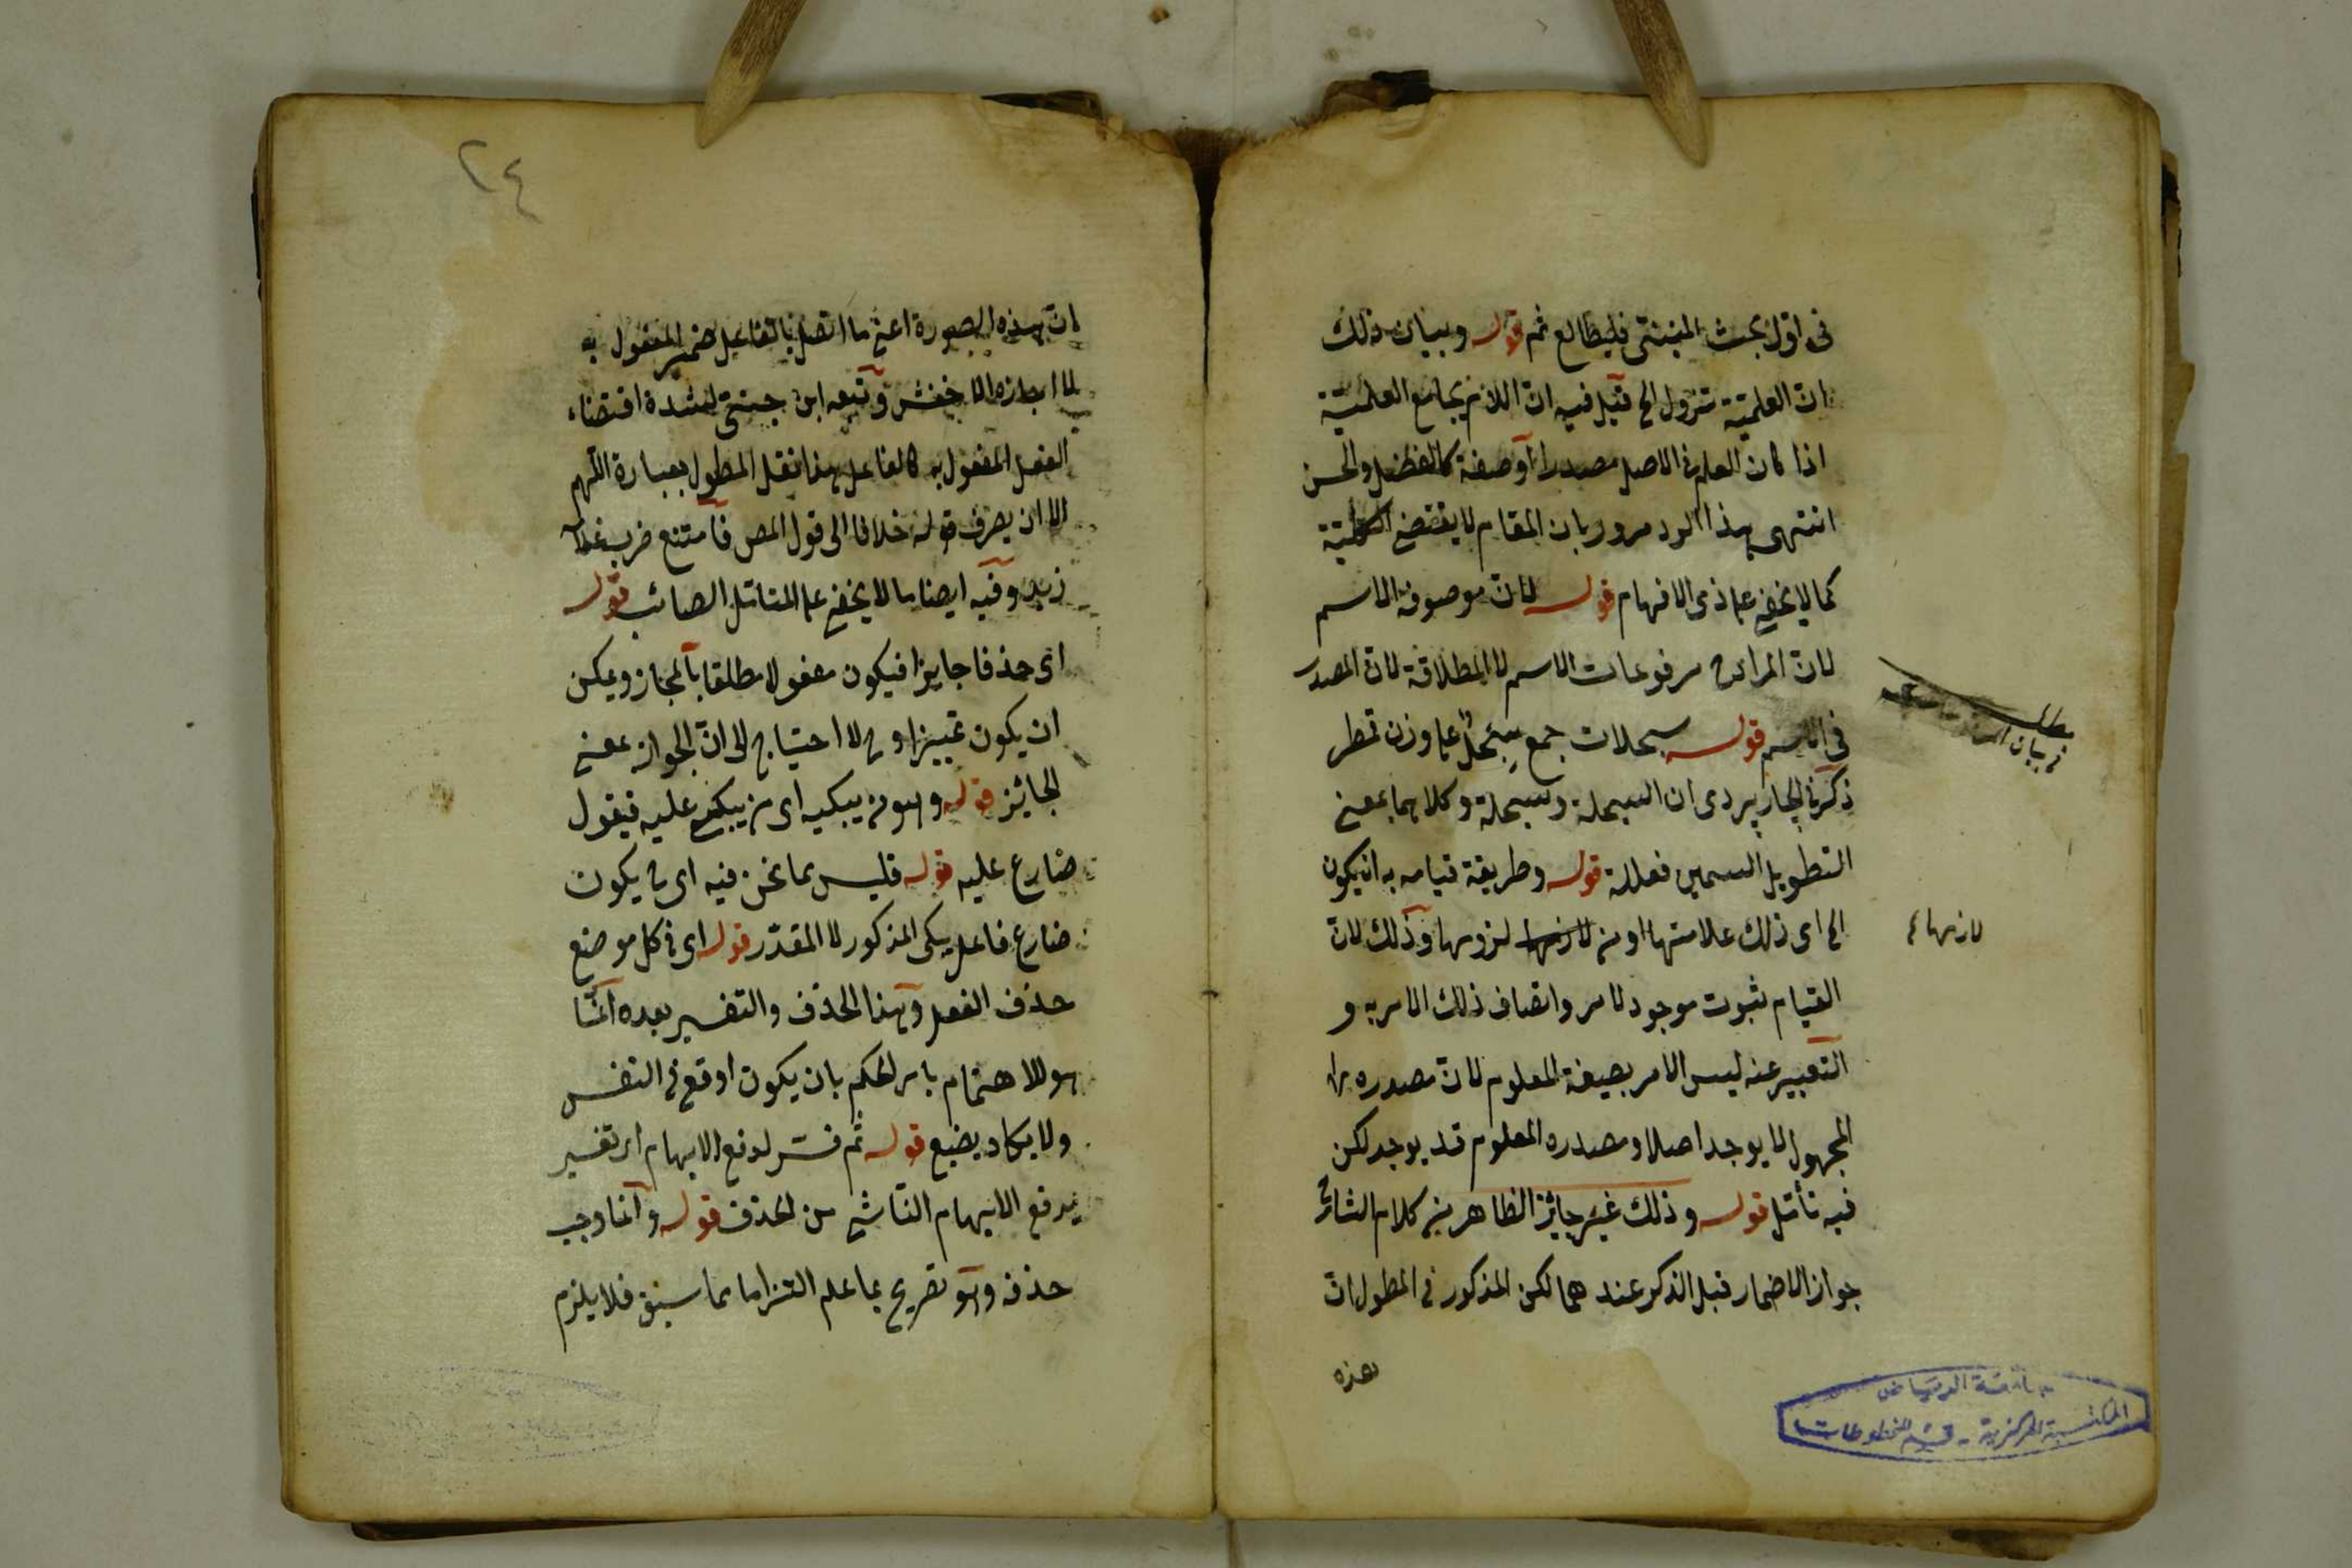 فى اول بحث المبنى فليطالع ثم قوله وبيان ذلك
ان العلمية تزول الخ قيل فيه ان اللازم يجامع العلمية
اذا كان العلم فى الاصل مصدرا او صفة كالفضل والحسن
انتهى هذا الرد مردود بان المقام لا يقتضى الكلية
كما لا يخفى على ذى الافهام قوله لان موصوفه الاسم
لان المراد مرفوعات الاسم لا المطلاقة لان المصدر
فى الاسم قوله سبحلات جمع سبحل على وزن قمطر
ذكر فى الجاربردى ان السبحلة وسبحلة وكلاهما بمعنى
التطويل السمين فعللة قوله وطريقة قيامه به ان يكون
الخ اى ذلك علامتها او من لزومها وذلك لان
لازمها
القيام ثبوت موجود لامر واتصاف ذلك الامر به و
التعبير عنه ليس الامر بصيغة المعلوم لان مصدره
المجهول لا يوجد اصلا ومصدره المعلوم قد يوجد لكن
فيه تأمل قوله وذلك غير جائز الظاهر من كلام الشارح
جواز الاضمار قبل الذكر عندهما لكن المذكور فى المطول ان
هذه
جامعة الرياض
المكتبة المركزية - قسم المخطوطات
٢٤
ان هذه الصورة اعنى ما اتصل بالفاعل ضمير المفعول به
لما اجازه الاخفش وتبعه ابن جنى لشدة اقتضاء
الفعل المفعول به كالفاعل هذا نقل المطول بعبارة اللهم
الا ان يصرف قوله خلافا الى قول المص فامتنع ضرب غلامه
زيدا وفيه ايضا ما لا يخفى على المتأمل الصائب قوله
اى حذفا جايزا فيكون مفعولا مطلقا بالمجاز ويمكن
ان يكون تمييزا وح لا احتياج الى ان الجواز بمعنى
الجائز قوله وهو من يبكيه اى من يبكى عليه فيقول
ضارع عليه قوله فليس مما نحن فيه اى ح يكون
ضارع فاعل يبكى المذكور لا المقدر قوله اى فى كل موضع
حذف الفعل وهذا الحذف والتفسير بعده انما
هو للاهتمام بامر الحكم بان يكون اوقع فى النفس
ولا يكاد يضيع قوله ثم فسر لدفع الابهام اى تفسير
يدفع الابهام الناشئ من الحذف قوله وانما وجب
حذفه وهو تصريح بما علم التزاما مما سبق فلا يلزم